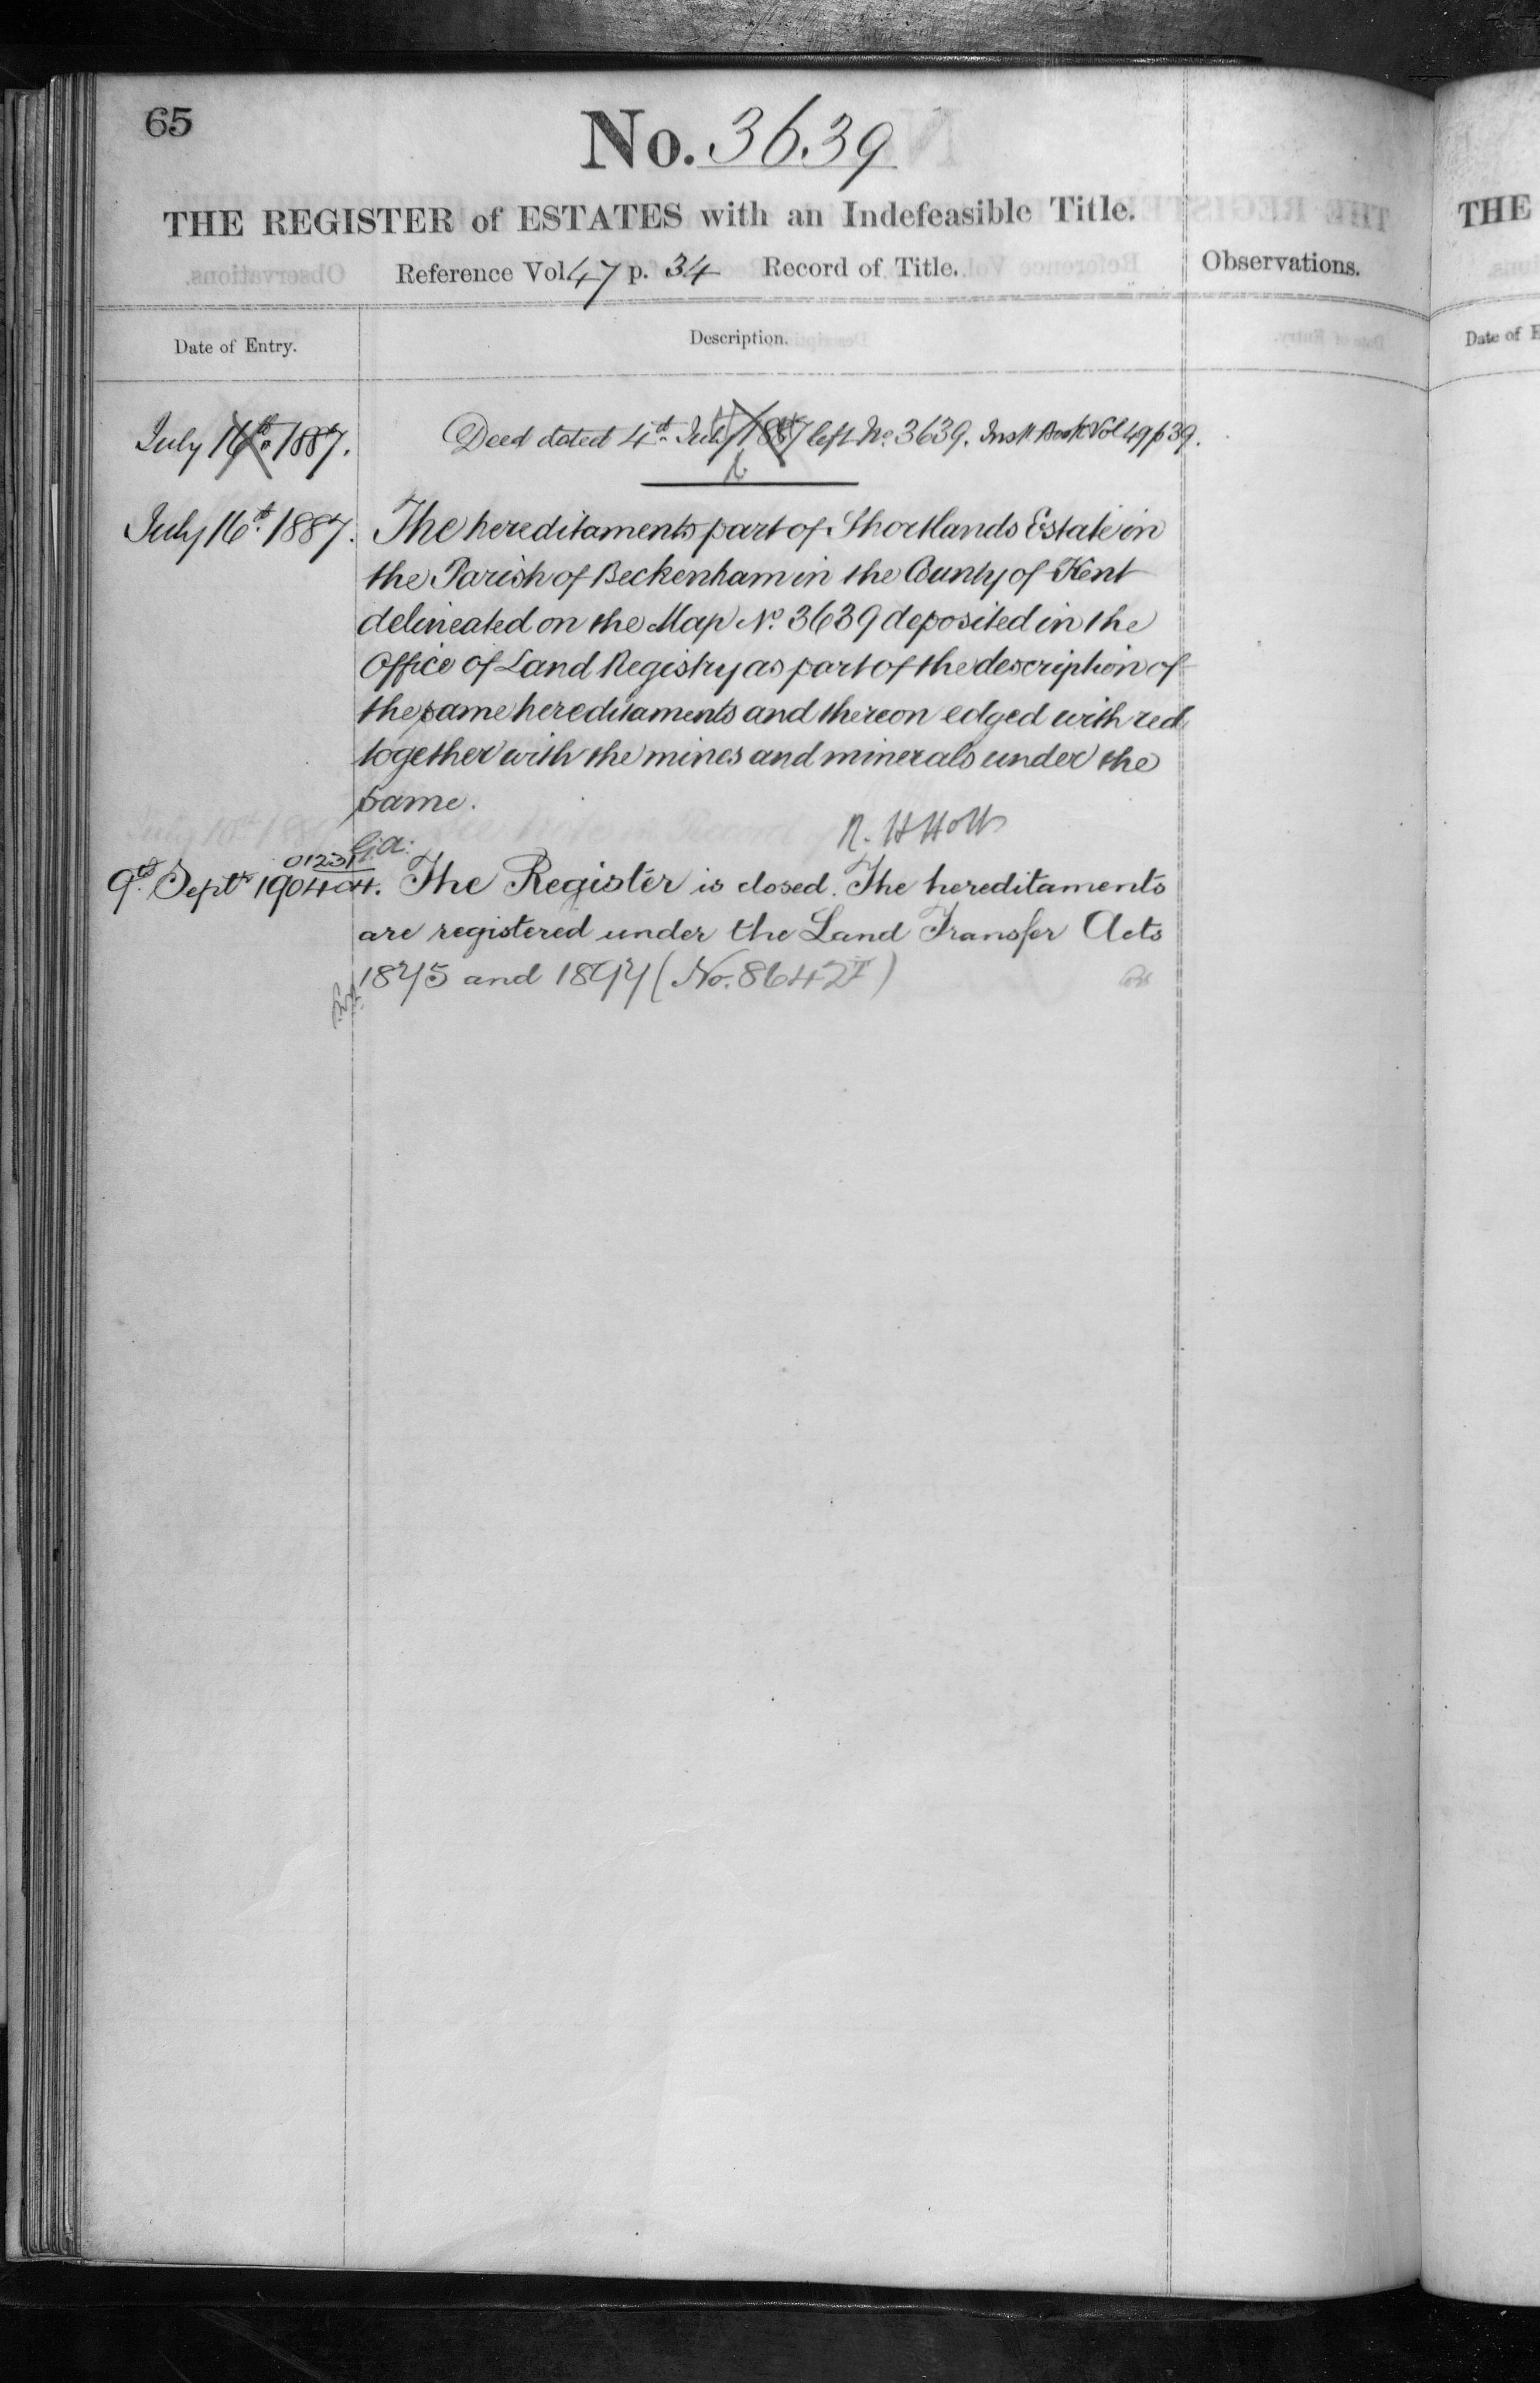 65
No. 3639
THE REGISTER of ESTATES with an Indefeasible Title.
Reference Vol. 47 p. 34 Record of Title.
Observations.
Date of Entry.
Description.
July 16th 1887.
Deed dated 4th July 1887 left No. 3639. Inst. Book Vol 49 p 39.
July 16th 1887.
The hereditaments part of Shortlands Estate in
the Parish of Beckenham in the County of Kent
delineated on the Map No. 3639 deposited in the
Office of Land Registry as part of the description of
the same hereditaments and thereon edged with red
together with the mines and minerals under the
same.
R. H Holt
01231
9th Septr 1904
The Register is closed. The hereditaments
are registered under the Land Transfer Acts
1875 and 1897 (No. 86427)
THE
Date of E